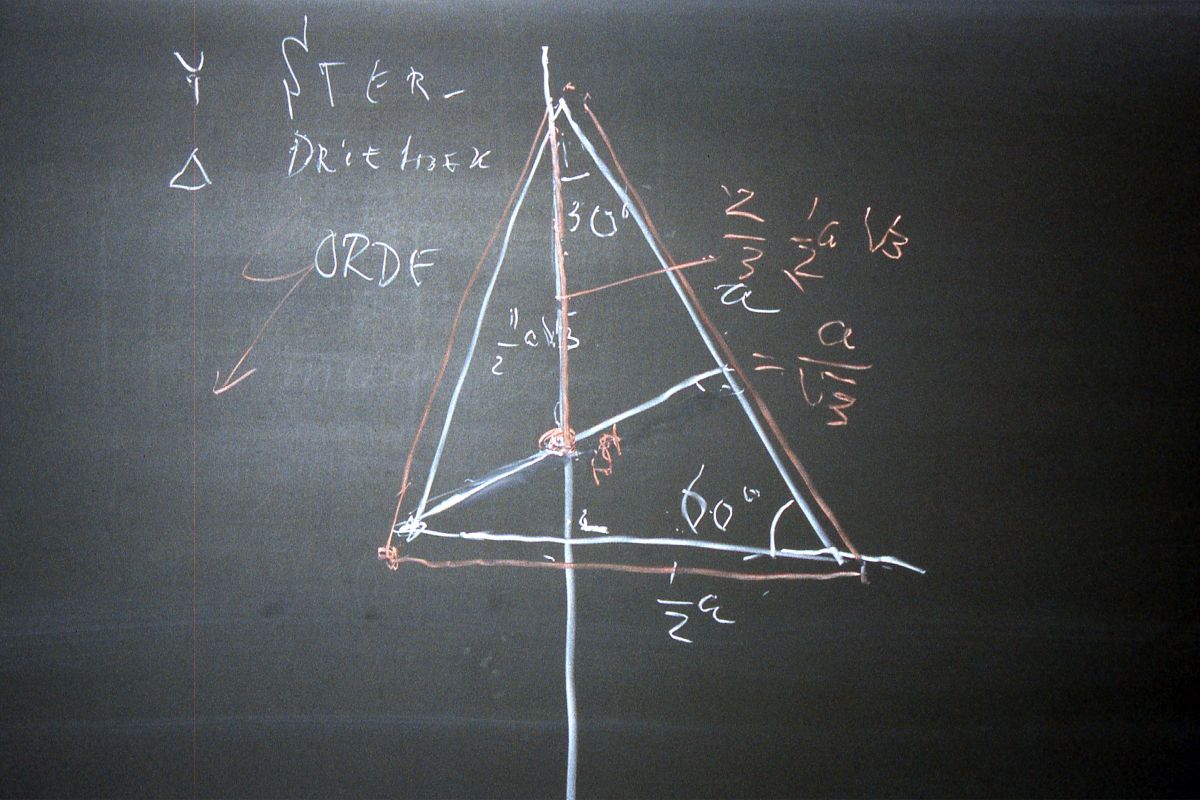 Y STER-
Δ DRIEHOEK
ORDE
30°
2/3 · 1/2 a √3
a
1/2 a √3
= a/√3
60°
1/2 a